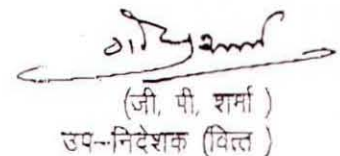 (जी, पी, शर्मा )
उप-निदेशक (वित्त )